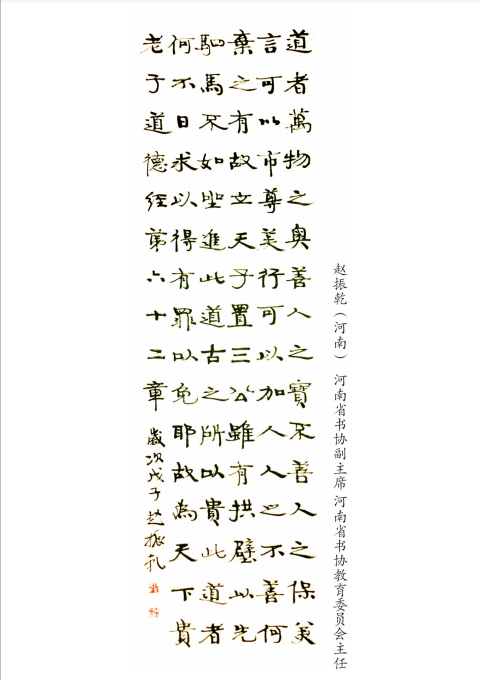 道者萬物之奧善人之寶不善人之保美
言可以市尊美行可以加人人之不善何
棄之有故立天子置三公雖有拱璧以先
駟馬不如坐進此道古之所以貴此道者
何不日求以得有罪以免耶故為天下貴
老子道德經第六十二章
歲次戊子趙振乾
赵振乾（河南） 河南省书协副主席 河南省书协教育委员会主任